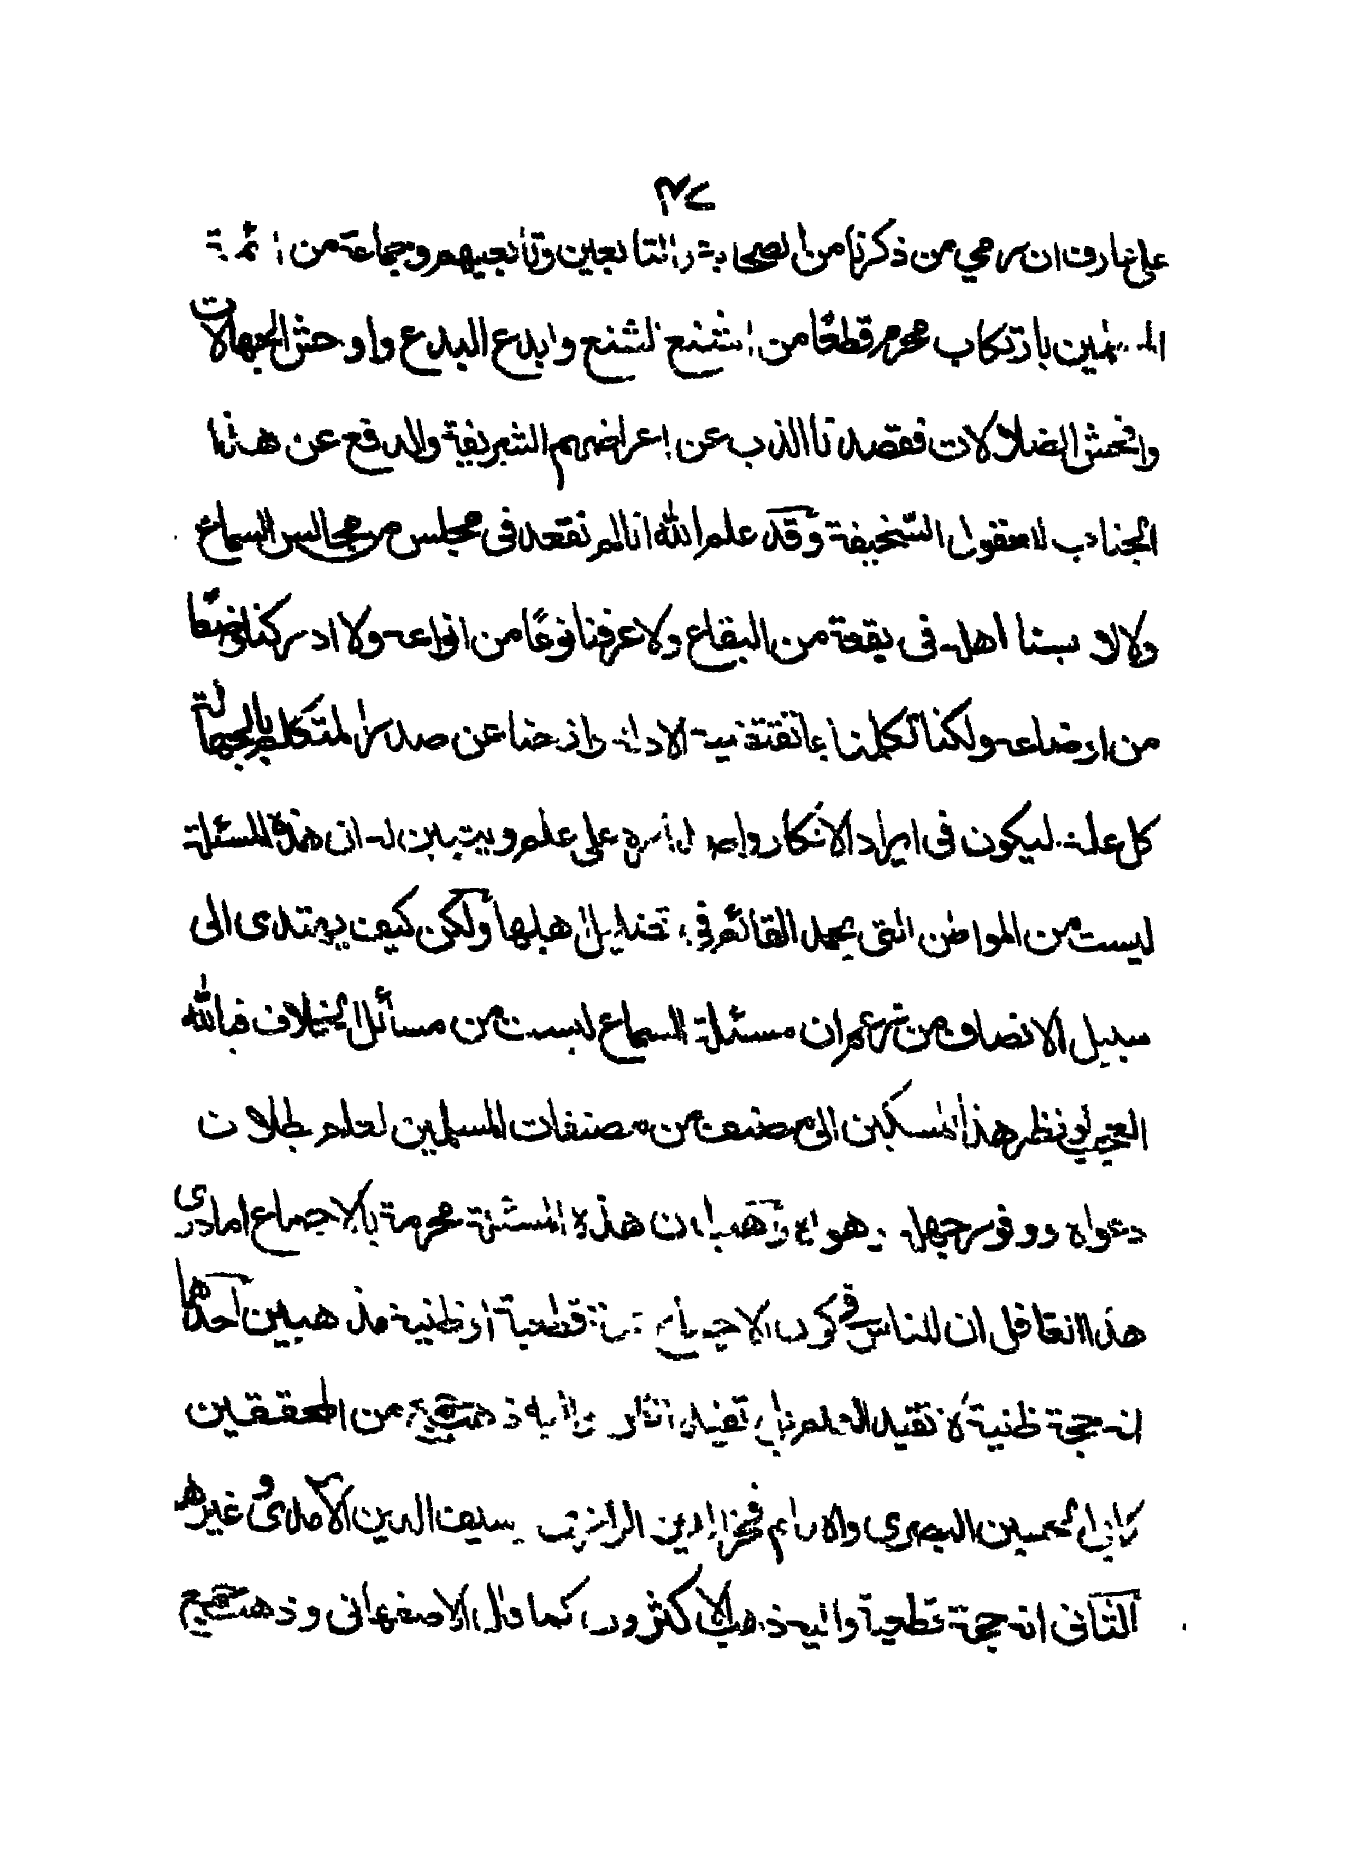 ٣٧
على عارف ان رمي من ذكرنا من الصحابة والتابعين وتابعيهم وجماعة من ائمة
المسلمين بارتكاب محرم قطعًا من اشنع الشنع وابدع البدع واوحش الجهالات
وافحش الضلالات فقصدنا الذب عن اعراضهم الشريفة والدفع عن هذا
الجناب للعقول السخيفة وقد علم الله انا لم نقعد فى مجلس من مجالس السماع
ولا لابسنا اهله فى بقعة من البقاع ولا عرفنا نوعًا من انواعه ولا ادركنا وضعًا
من اوضاعه ولكنا تكلمنا بما تقتضيه الادلة وازحنا عن صدر المتكلم بالجهالة
كل علة ليكون فى ايراد الانكار واصداره على علم ويتبين له ان هذه المسئلة
ليست من المواطن التى يحمد القائم فى تضليل اهلها ولكن كيف يهتدى الى
سبيل الانصاف من يزعم ان مسئلة السماع ليست من مسائل الخلاف فبالله
العجب لو نظر هذا المسكين الى مصنف من مصنفات المسلمين لعلم بطلان
دعواه ووفور جهله وهواه وهب ان هذه المسئلة محرمة بالاجماع اما درى
هذا الغافل ان للناس فى كون الاجماع حجة قطعية او ظنية مذهبين احدها
انه حجة ظنية لا تفيد العلم بل تفيد الظن واليه ذهب جمع من المحققين
كابى الحسين البصرى والامام فخر الدين الرازى وسيف الدين الآمدى وغيرهم
الثانى انه حجة قطعية واليه ذهب الاكثرون كما قال الاصفهانى وذهب جمع